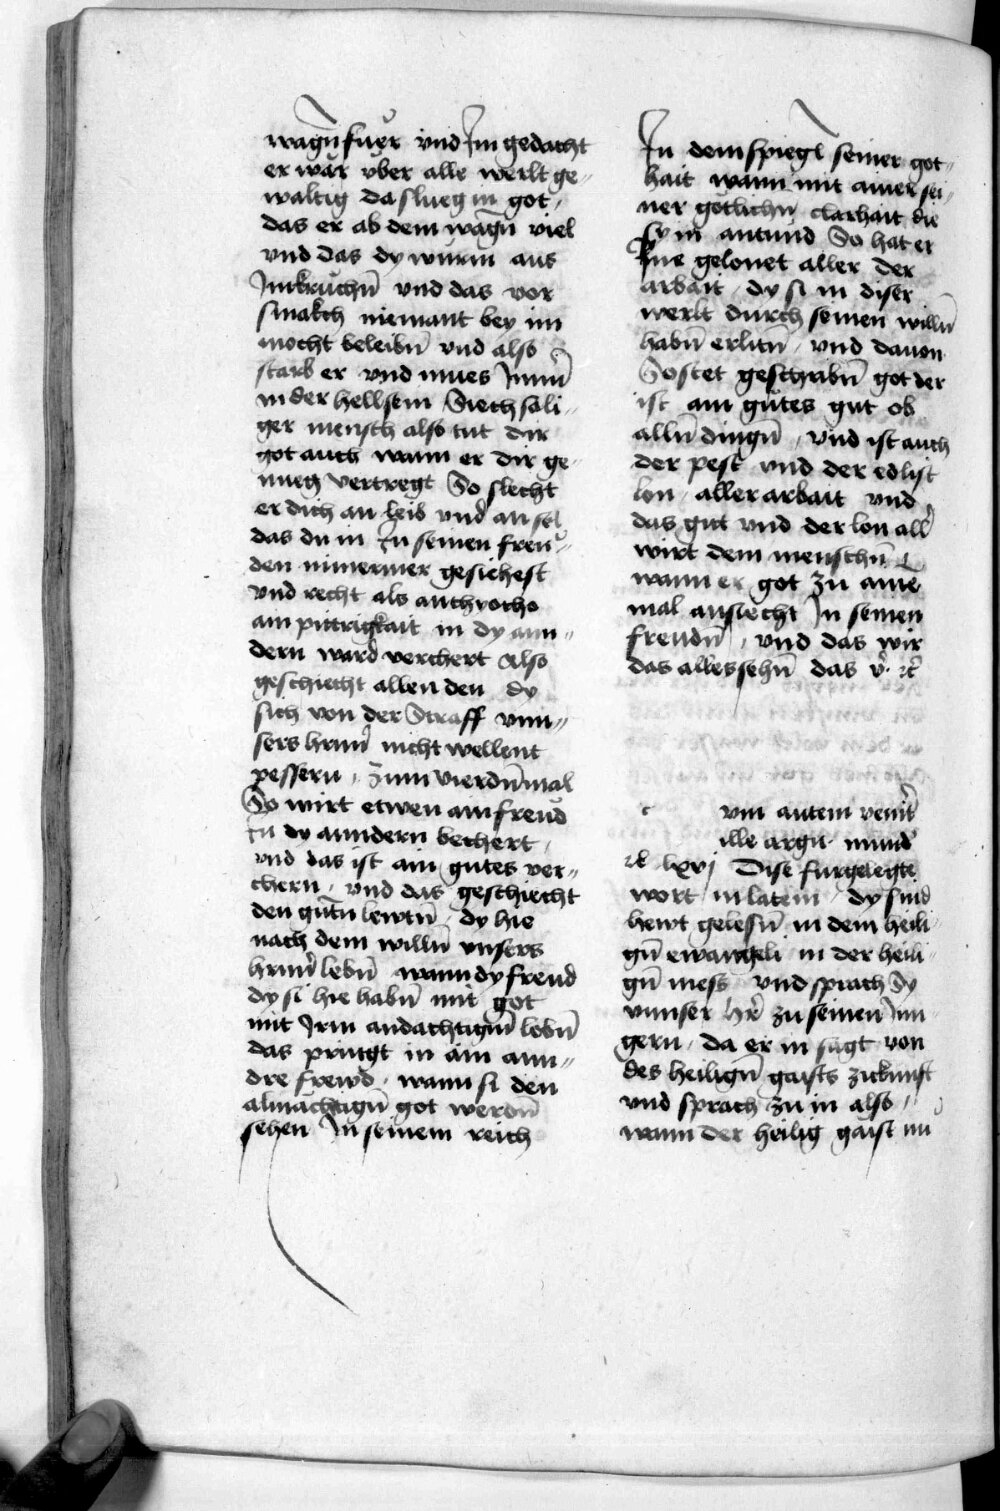 wagn̄ fuer vnd Im gedacht
er wär vber alle werlt ge〃
waltig da slueg in got /
das er ab dem wagn̄ viel
vnd das dy würm aus
Im kruchn̄ vnd das vor
smakch niemant bey im
mocht beleibn̄ vnd also
starb er vnd mues Imm̄
in der hell sein Siech sali〃
ger mensch also tut dir
got auch wann er dir ge〃
nueg vertregt So slecht
er dich an leib vnd an sel
das du in In seinen freu〃
den nimermer gesichest
vnd recht als anthyocho
ain pittrigkait in dy ann〃
dern ward verchert Also
geschiecht allen den dy
sich von der Straff vnn〃
sers hrnn̄ nicht wellent
pessern / Zum vierdn̄ mal
So wirt etwen ain freud
in dy anndern bechert /
vnd das ist ain gutes ver〃
chern / vnd das geschiecht
den gutn̄ lewtn̄ / dy hie
nach dem willn̄ vnsers
hrnn̄ lebn̄ wann dy freud
dy si hie habn̄ mit got
mit Irm andachtign̄ lebn̄
das pringt in ain ann〃
dre frewd / wann si den
almächtign̄ got werdn̄
sehen In seinem reich
In dem spiegl seiner got〃
hait wann mit ainer sei〃
ner gotlichn̄ clarhait die
sy in antund So hat er
Ine gelonet aller der
arbait / dy si in diser
werlt durch seinen willn̄
habn̄ erlitn̄ / vnd dauon
So stet geschribn̄ got der
ist ain gutes gut ob
alln̄ dingn̄ / vnd ist auch
der pest vnd der edlist
lon / aller arbait vnd
das gut vnd der lon all̄
wirt dem menschn̄
wann er got zu aine
mal ansiecht In seinen
freudn̄ / vnd das wir
das alles sehn̄ das v̄. ꝛc̄
c vm autem venit̄
ille argu. mund̄
lxvj Dise furgelegte
wort in latein / dy sind
hewt gelesn̄ in dem heili〃
gn̄ ewangeli in der heili〃
gn̄ mess vnd sprach Sy
vnnser hr̄ zu seinen Inn〃
gern / da er in sagt von
des heilign̄ gaists zukunft
vnd sprach zu in also /
wann der heilig gaist nu